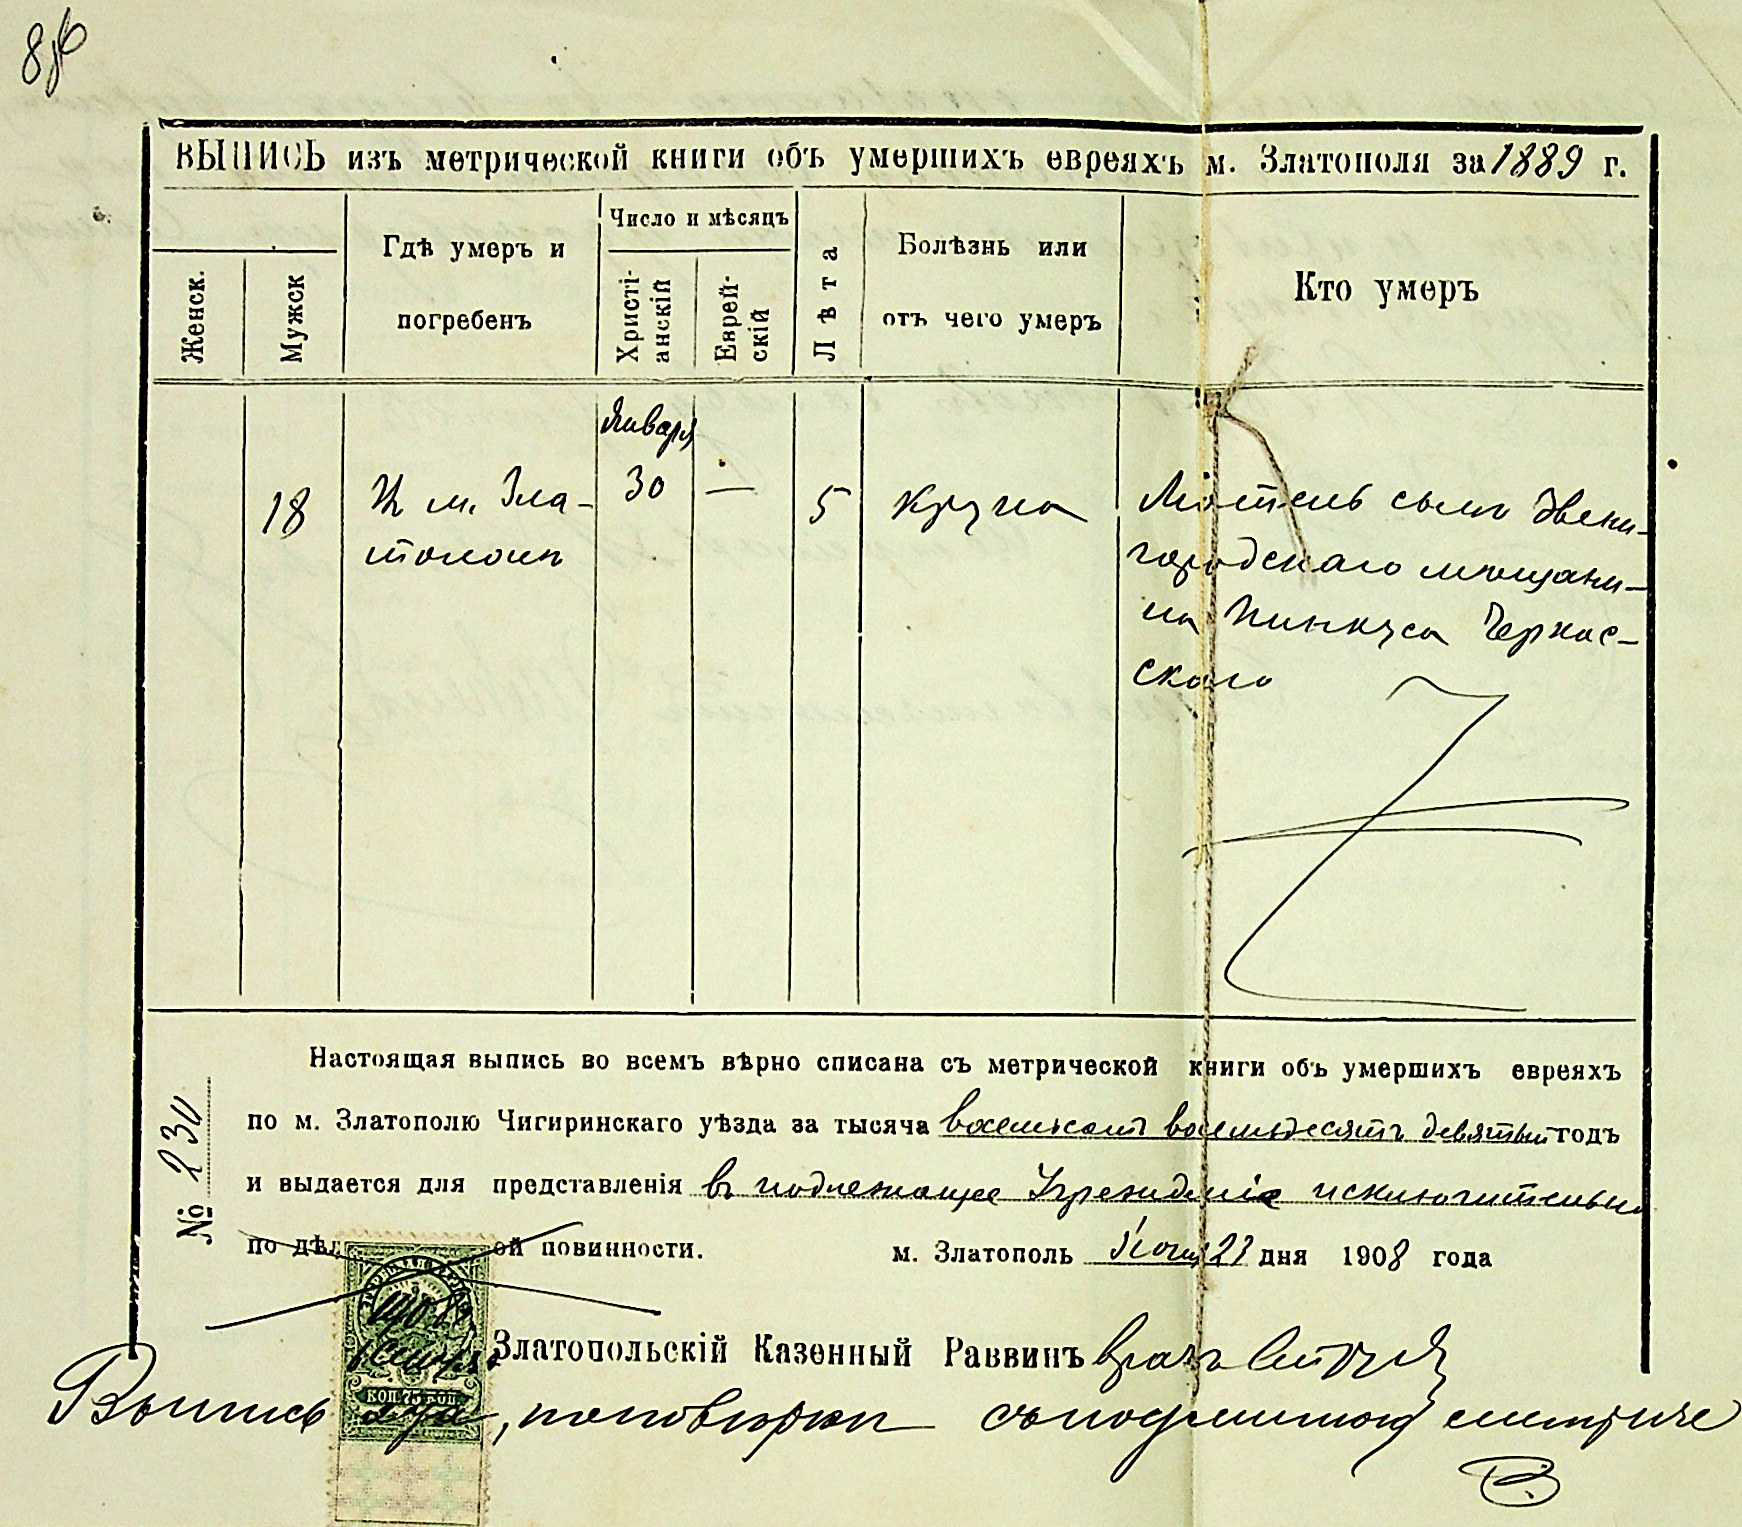 ВЫПИСЬ изъ метрической книги объ умершихъ евреяхъ м. Златополя за 1889 г.
Женск.
Мужск
Гдѣ умеръ и
погребенъ
Число и мѣсяцъ
Христі-
анскій
Еврей-
скій
Лѣта
Болѣзнь или
отъ чего умеръ
Кто умеръ
Января
18
В м. Зла-
тополѣ
30
—
5
Крупа
Мотель сынъ Звени-
городскаго мѣщани-
на Пинкуса Черкас-
скаго
Настоящая выпись во всемъ вѣрно списана съ метрической книги объ умершихъ евреяхъ
по м. Златополю Чигиринскаго уѣзда за тысяча восемьсотъ восемьдесятъ девятый годъ
и выдается для представленія въ подлежащее Учрежденіе исключительно
по дѣл ой повинности.
м. Златополь 23 дня 1908 года
№ 230
Златопольскій Казенный Раввинъ врачъ
КОП. 75 КОП.
Выпись эта, по повѣркѣ съ подлинною метрике